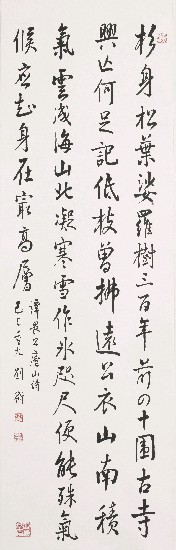 杉身松葉娑羅樹三百年前四十圍古寺
興亡何足記低枝曾拂遠公衣山南積
氣雲成海山北凝寒雪作冰咫尺便能殊氣
候应知身在最高層
譚畏公廬山詩
己巳 劉